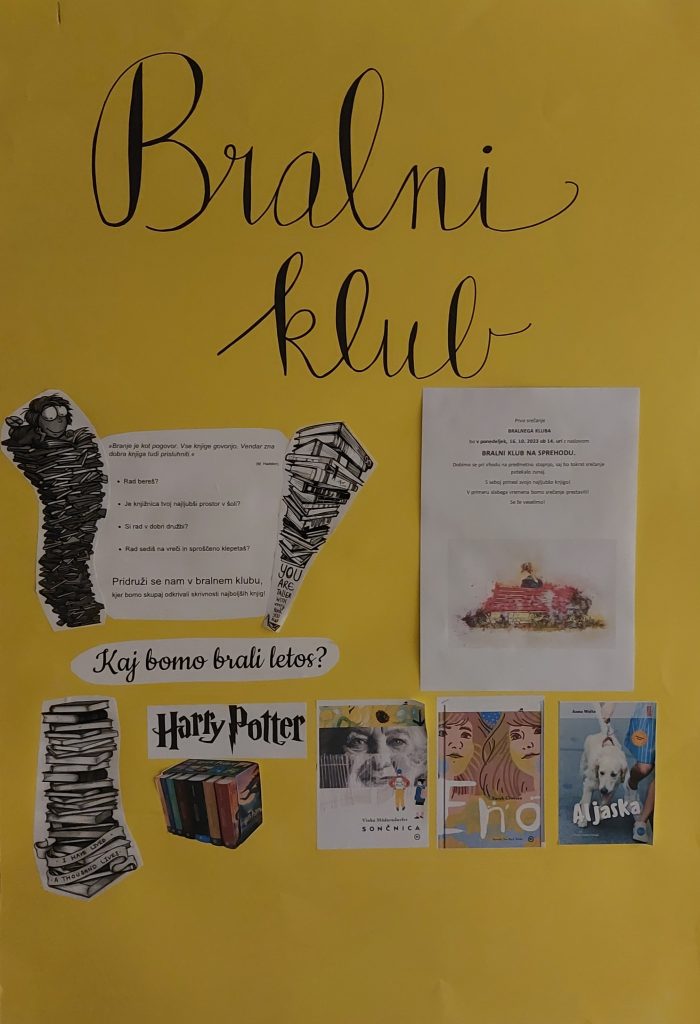 Bralni
klub
»Branje je kot pogovor. Vse knjige govorijo. Vendar zna
dobra knjiga tudi prisluhniti.«
• Rad bereš?
• Je knjižnica tvoj najljubši prostor v šoli?
• Si rad v dobri družbi?
• Rad sediš na vreči in sproščeno klepetaš?
Pridruži se nam v bralnem klubu,
kjer bomo skupaj odkrivali skrivnosti najboljših knjig!
YOU
ARE
TALLER
WITH
Prvo srečanje
BRALNEGA KLUBA
bo v ponedeljek, 16. 10. 2023 ob 14. uri z naslovom
BRALNI KLUB NA SPREHODU.
Dobimo se pri vhodu na predmetno stopnjo, saj bo tokrat srečanje
potekalo zunaj.
S seboj prinesi svojo najljubšo knjigo!
V primeru slabega vremena bomo srečanje prestavili!
Se že veselimo!
Kaj bomo brali letos?
I HAVE LIVED
A THOUSAND LIVES
Harry Potter
Vinko Möderndorfer
SONČNICA
Sarah Crossan
Eno
Anna Woltz
Aljaska